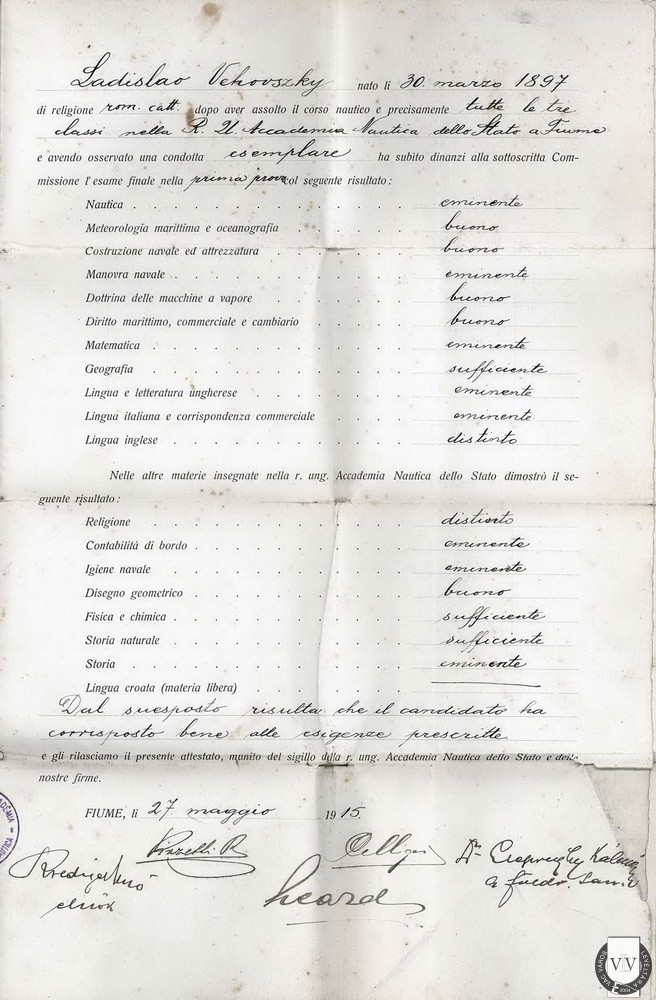 Ladislao Vehovszky nato li 30. marzo 1897
di religione rom. catt. dopo aver assolto il corso nautico e precisamente tutte le tre
classi nella R. U. Accademia Nautica dello Stato a Fiume
e avendo osservato una condotta esemplare ha subìto dinanzi alla sottoscritta Com-
missione l'esame finale nella prima prova col seguente risultato:
Nautica eminente
Meteorologia marittima e oceanografia buono
Costruzione navale ed attrezzatura buono
Manovra navale eminente
Dottrina delle macchine a vapore buono
Diritto marittimo, commerciale e cambiario buono
Matematica eminente
Geografia sufficiente
Lingua e letteratura ungherese eminente
Lingua italiana e corrispondenza commerciale eminente
Lingua inglese distinto
Nelle altre materie insegnate nella r. ung. Accademia Nautica dello Stato dimostrò il se-
guente risultato:
Religione distinto
Contabilità di bordo eminente
Igiene navale eminente
Disegno geometrico buono
Fisica e chimica sufficiente
Storia naturale sufficiente
Storia eminente
Lingua croata (materia libera)
Dal suesposto risulta che il candidato ha
corrisposto bene alle esigenze prescritte
e gli rilasciamo il presente attestato, munito del sigillo della r. ung. Accademia Nautica dello Stato e delle
nostre firme.
FIUME, li 27. maggio 1915.
elnök